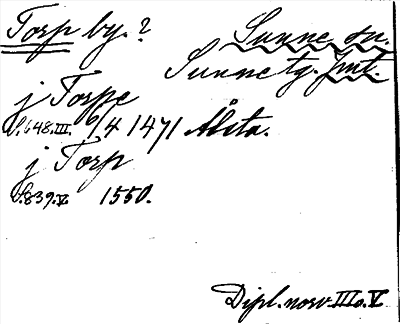 Torp by. ? Sunne sn.
Sunne tg. Jmt.
j Torpe
S. 648. III. 6/4 1471 Ålsta.
j Torp
S. 839. V. 1550.
Dipl. norv. III o. V.